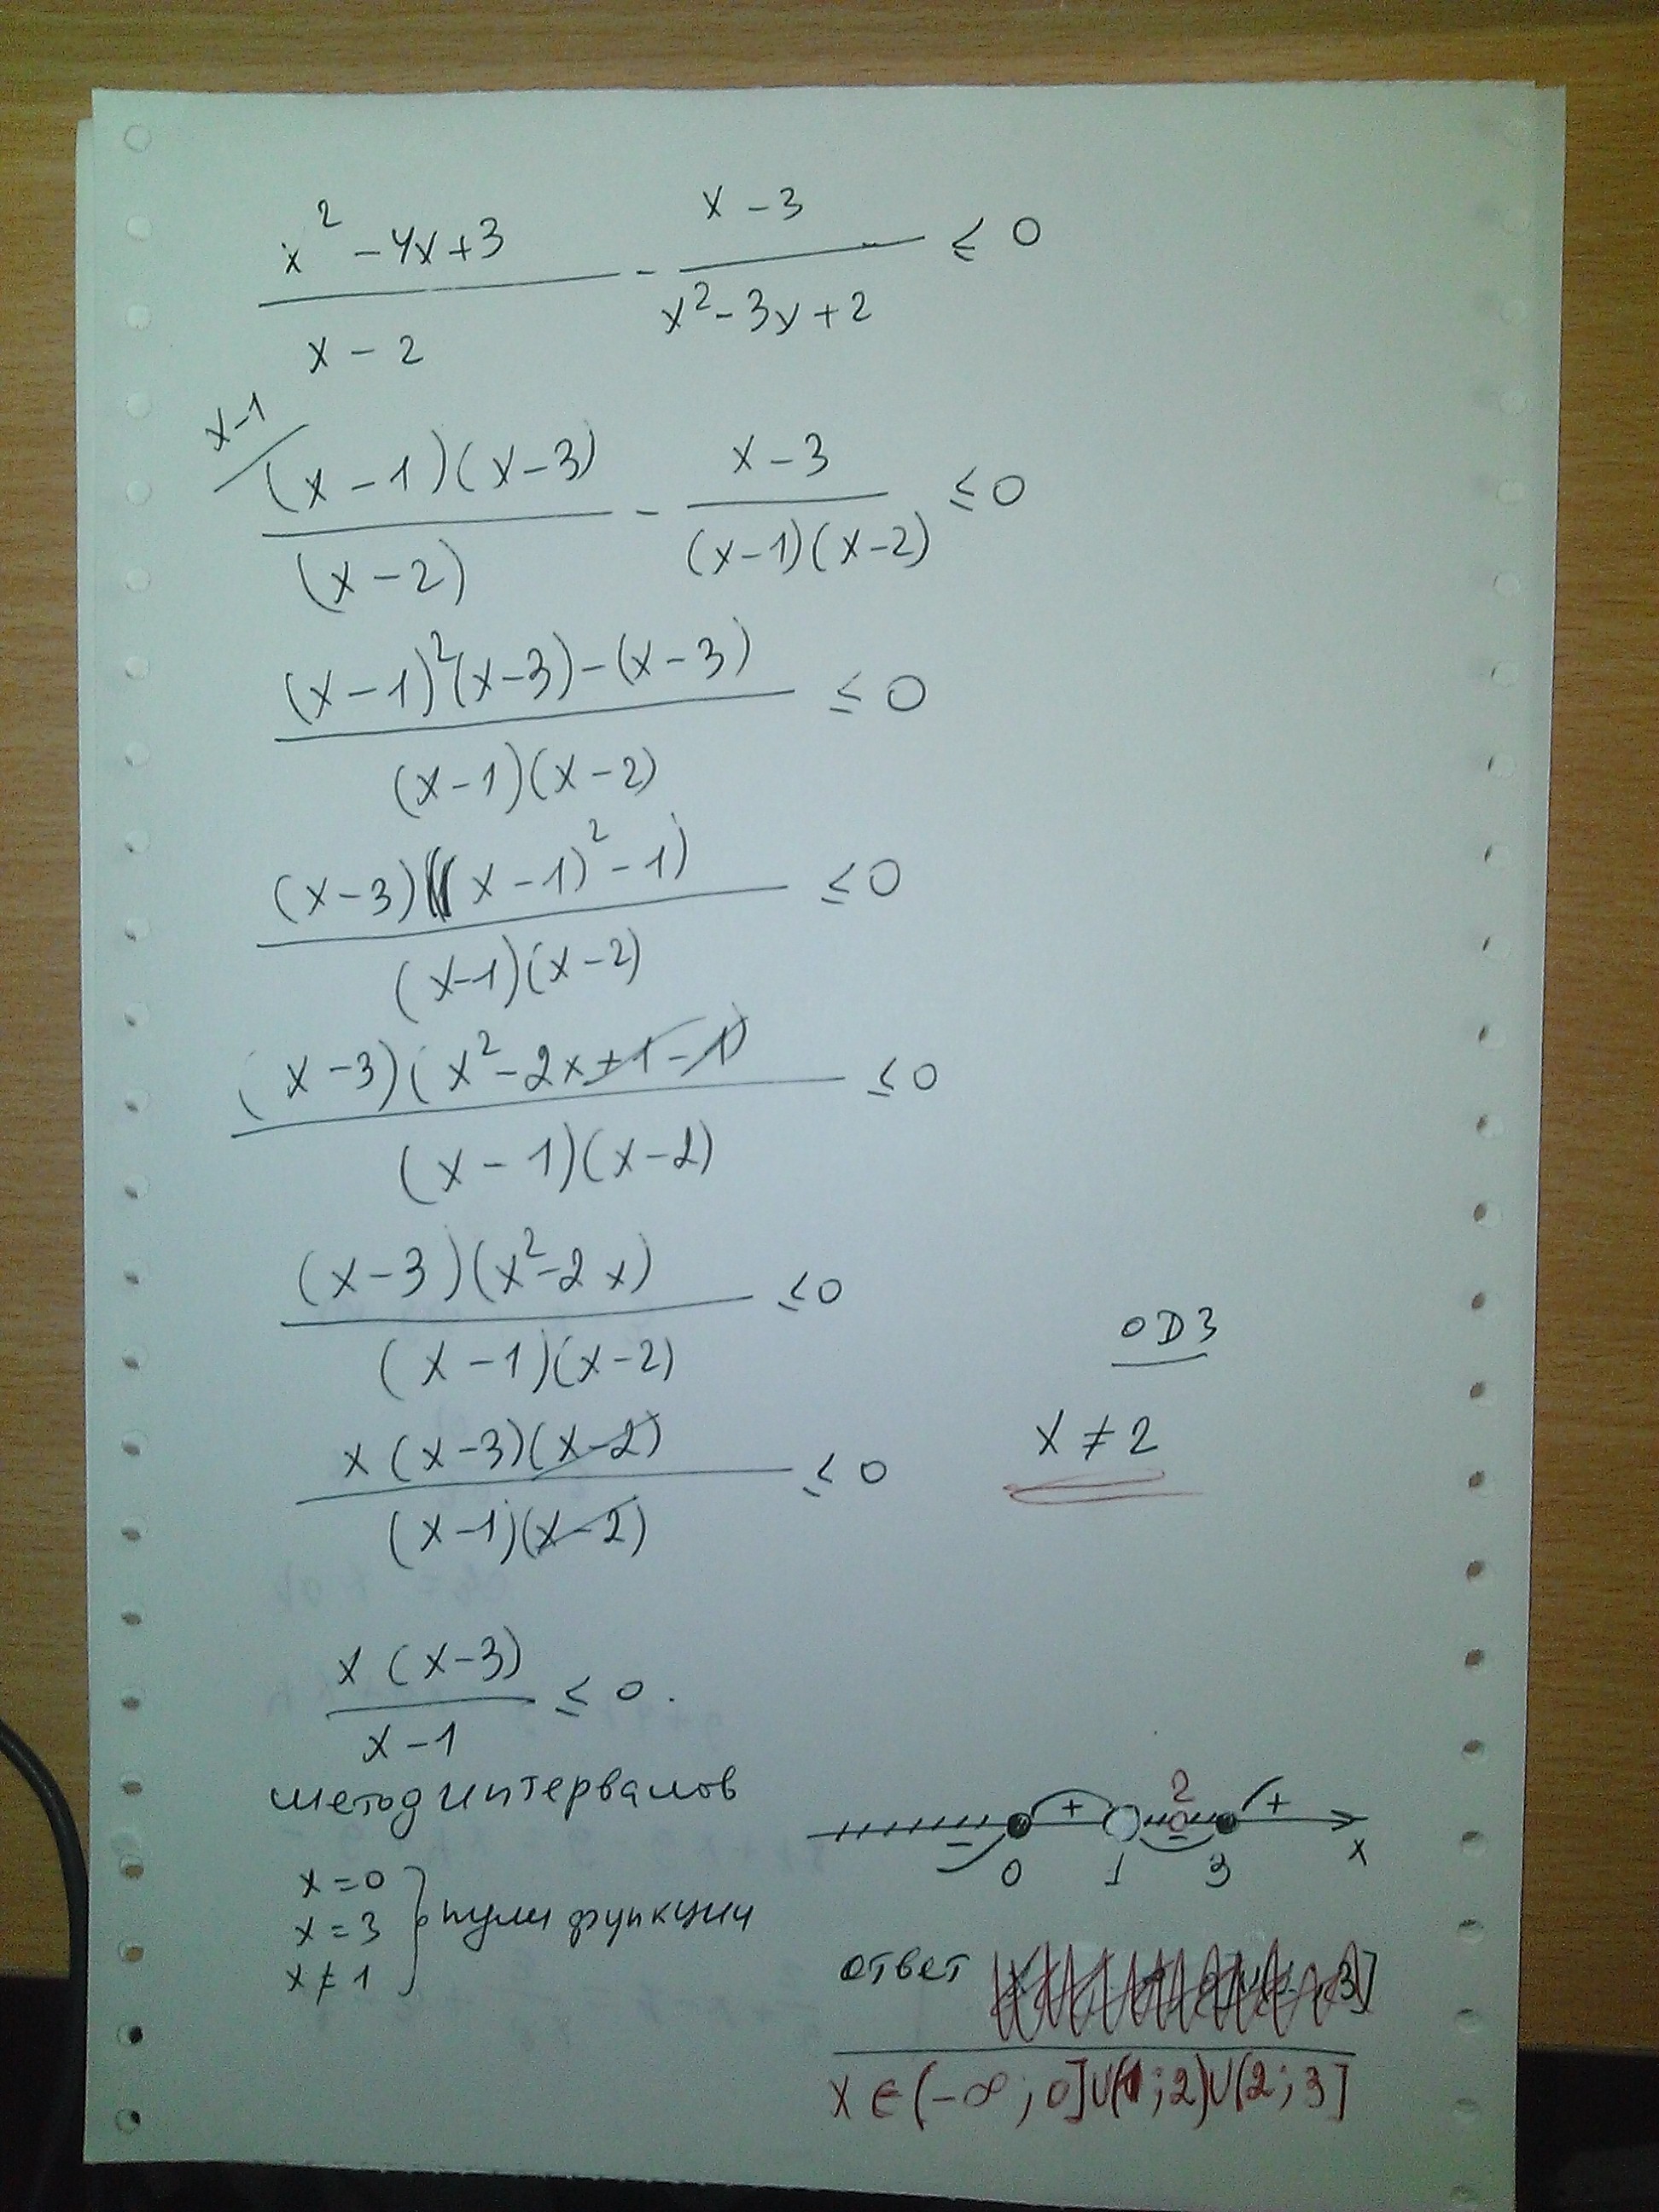 x² - 4x + 3 / x - 2 - x - 3 / x² - 3x + 2 ≤ 0
x-1
(x - 1)(x - 3) / (x - 2) - x - 3 / (x-1)(x-2) ≤ 0
(x-1)²(x-3) - (x-3) / (x-1)(x-2) ≤ 0
(x-3)((x-1)² - 1) / (x-1)(x-2) ≤ 0
(x-3)(x² - 2x + 1 - 1) / (x-1)(x-2) ≤ 0
(x-3)(x² - 2x) / (x-1)(x-2) ≤ 0
ОДЗ
x(x-3)(x-2) / (x-1)(x-2) ≤ 0
x ≠ 2
x(x-3) / x-1 ≤ 0.
метод интервалов
2
- + - +
0 1 3 x
x = 0
x = 3
x ≠ 1
нули функции
ответ
3]
x ∈ (-∞; 0] ∪ (1; 2) ∪ (2; 3]